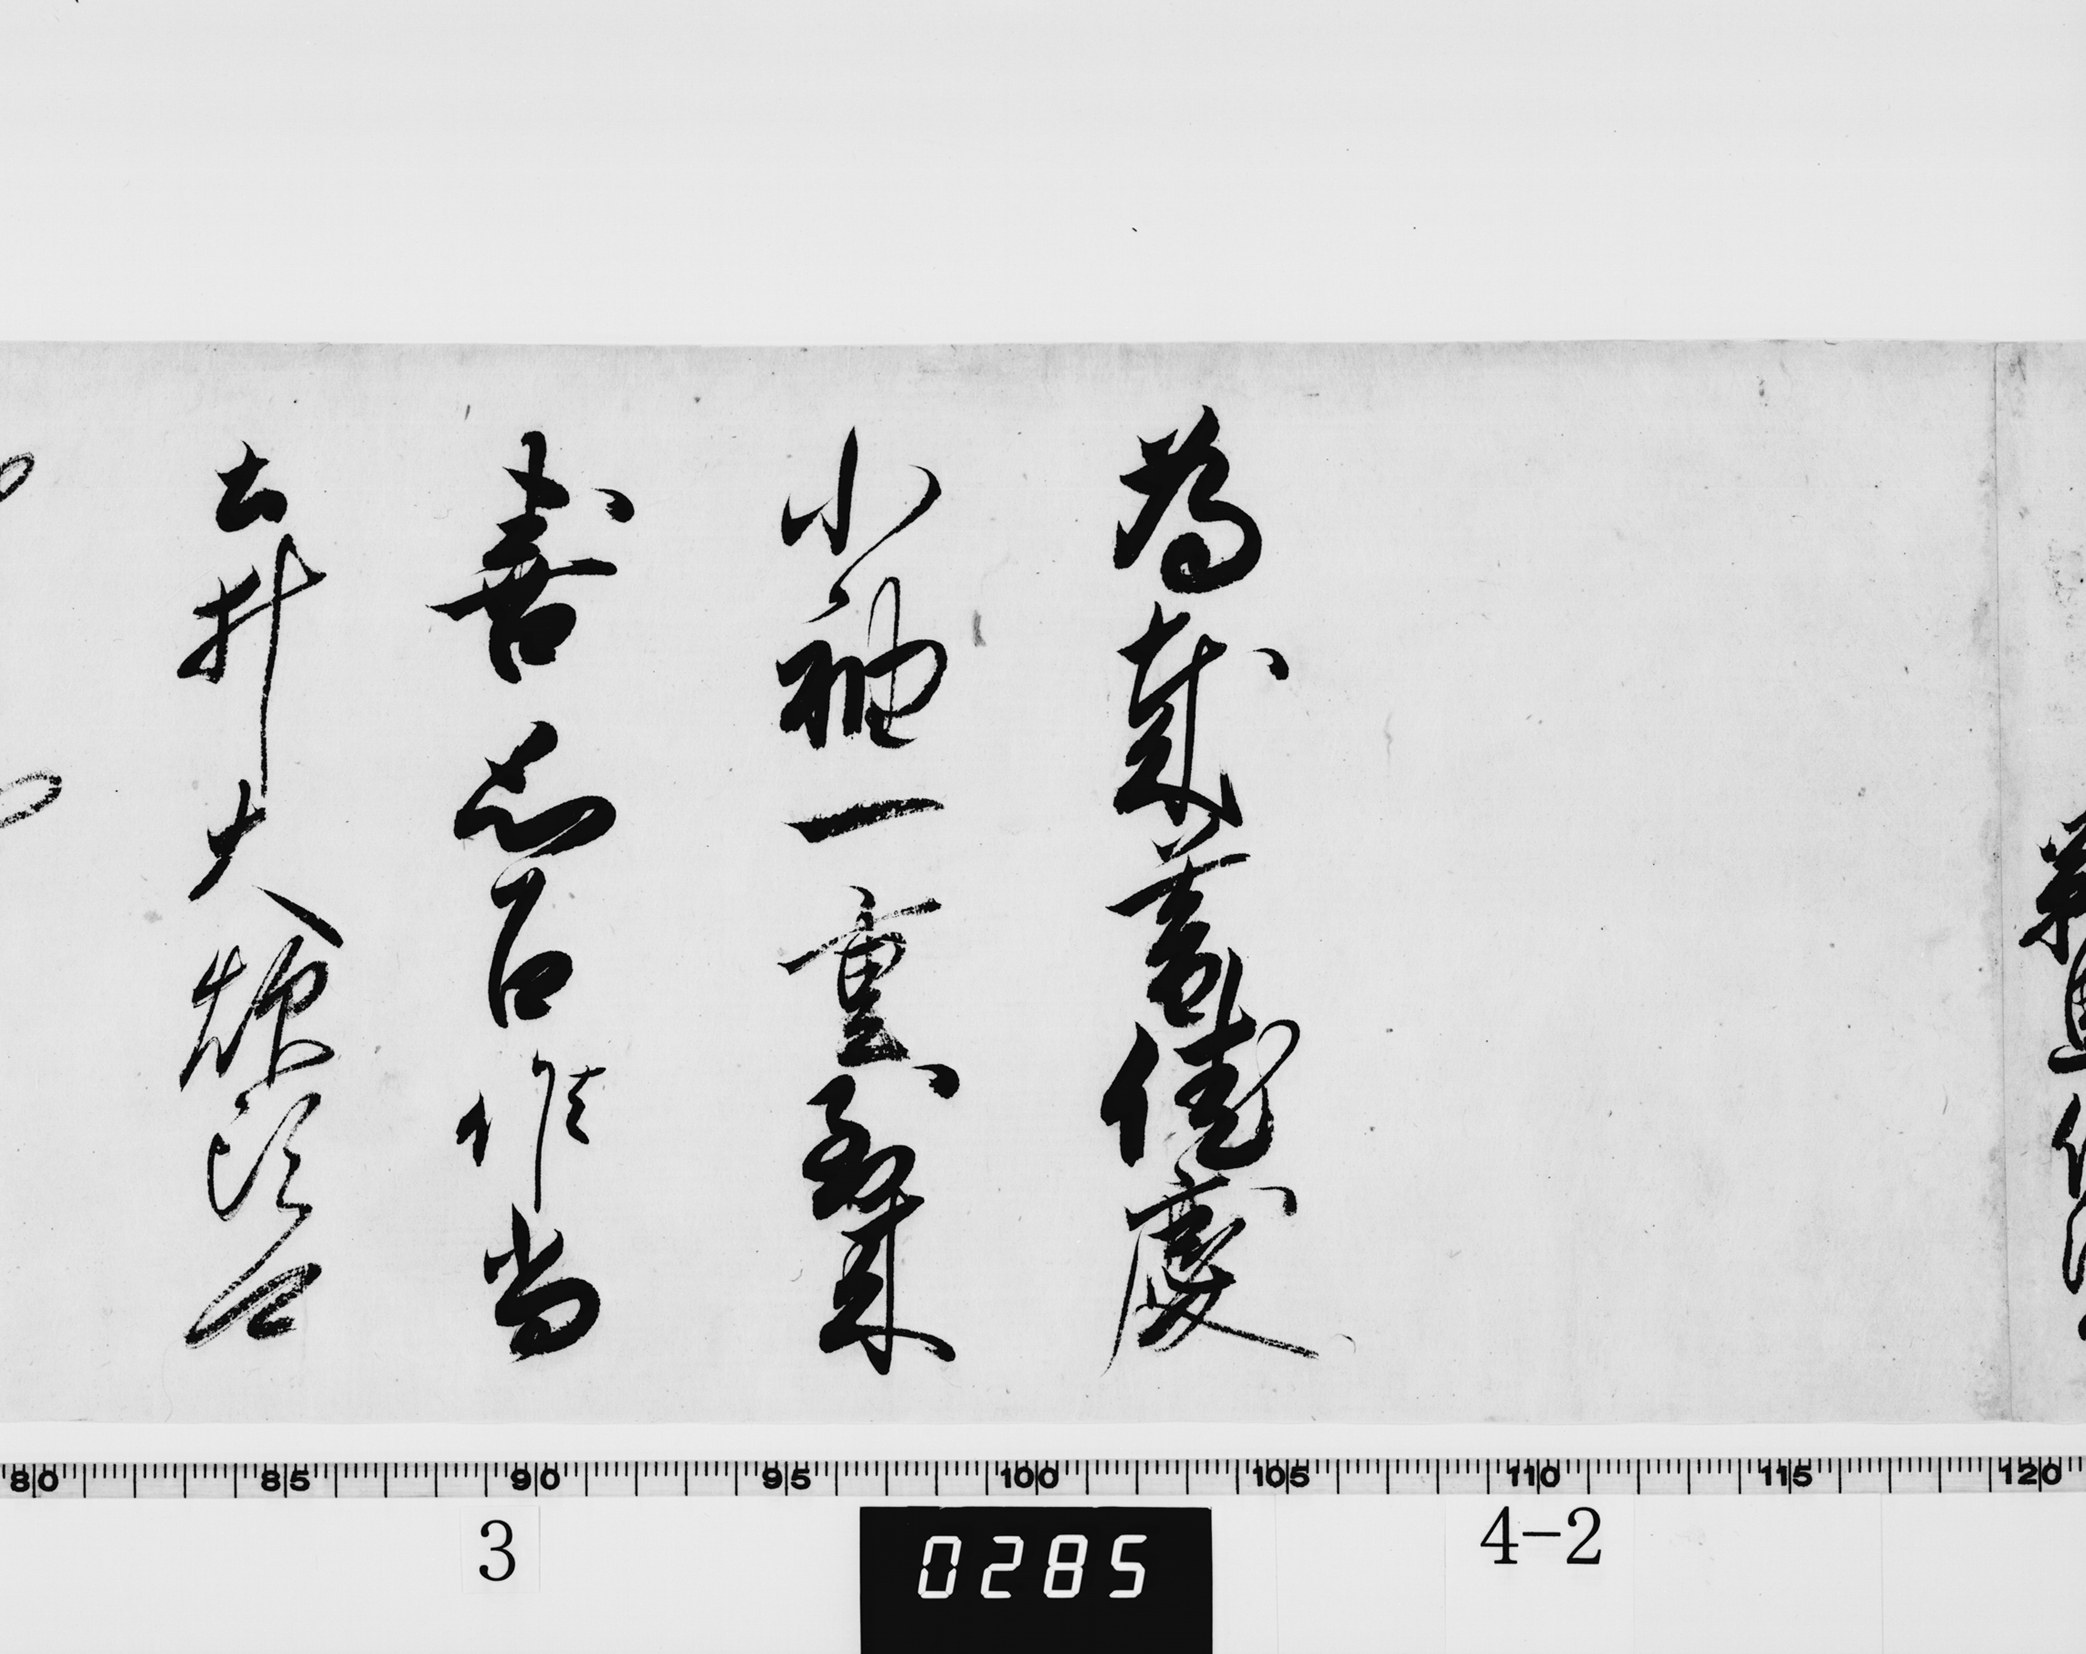 為歳暮佳慶
小袖一重到来
喜思召候尚
土井大炊頭可
80 85 90 95 100 105 110 115 120
3 0285 4-2